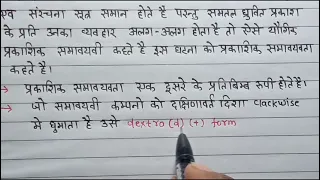 एवं संरचना सूत्र समान होते है परन्तु समतल ध्रुवित प्रकाश
के प्रति उनका व्यवहार अलग-अलग होता है तो ऐसे यौगिक
प्रकाशिक समावयवी कहते है इस घटना को प्रकाशिक समावयवता
कहते है।
→ प्रकाशिक समावयवता एक दूसरे के प्रतिबिम्ब रूपी होते है।
→ जो समावयवी कम्पनो को दक्षिणावर्त दिशा clockwise
मे घुमाता है उसे dextro (d) (+) form